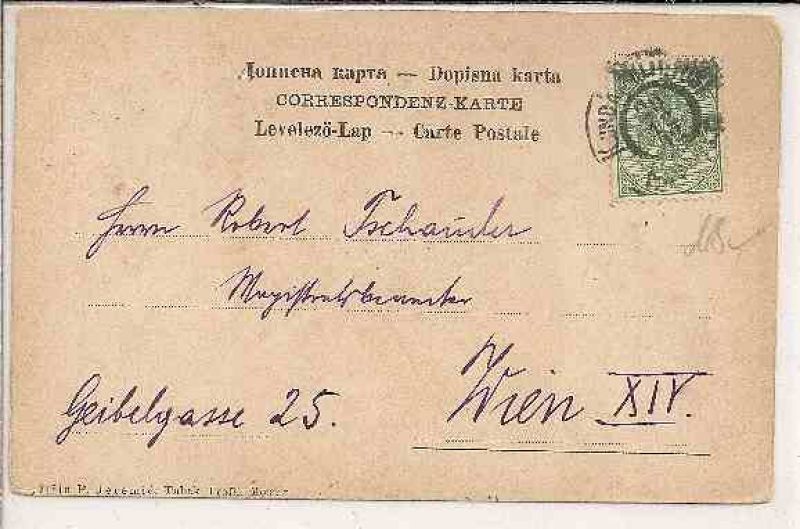 Дописна карта — Dopisna karta
CORRESPONDENZ-KARTE
Levelező-Lap — Carte Postale
Herrn Robert Tschauder
Magistratsbeamter
Wien XIV.
Geibelgasse 25.
P. Jeremić, Tabak